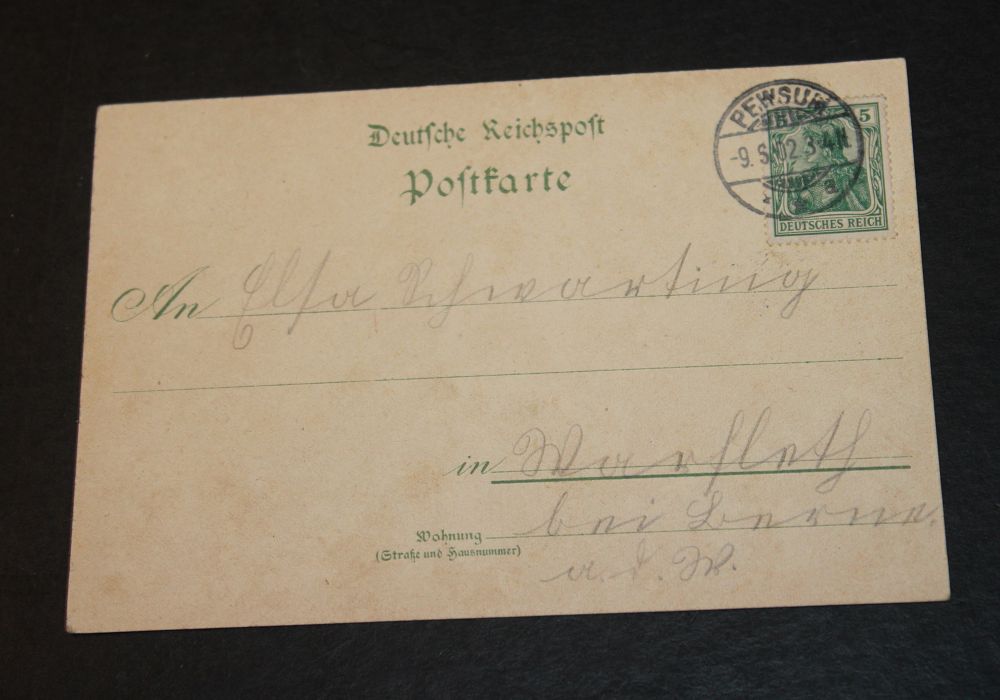 Deutsche Reichspost
Postkarte
PEWSUM
-9. 02. 3-4 N
a
5
DEUTSCHES REICH
An Elsa Schwarting
in Warfleth
bei Berne.
Wohnung
(Straße und Hausnummer)
a. d. W.